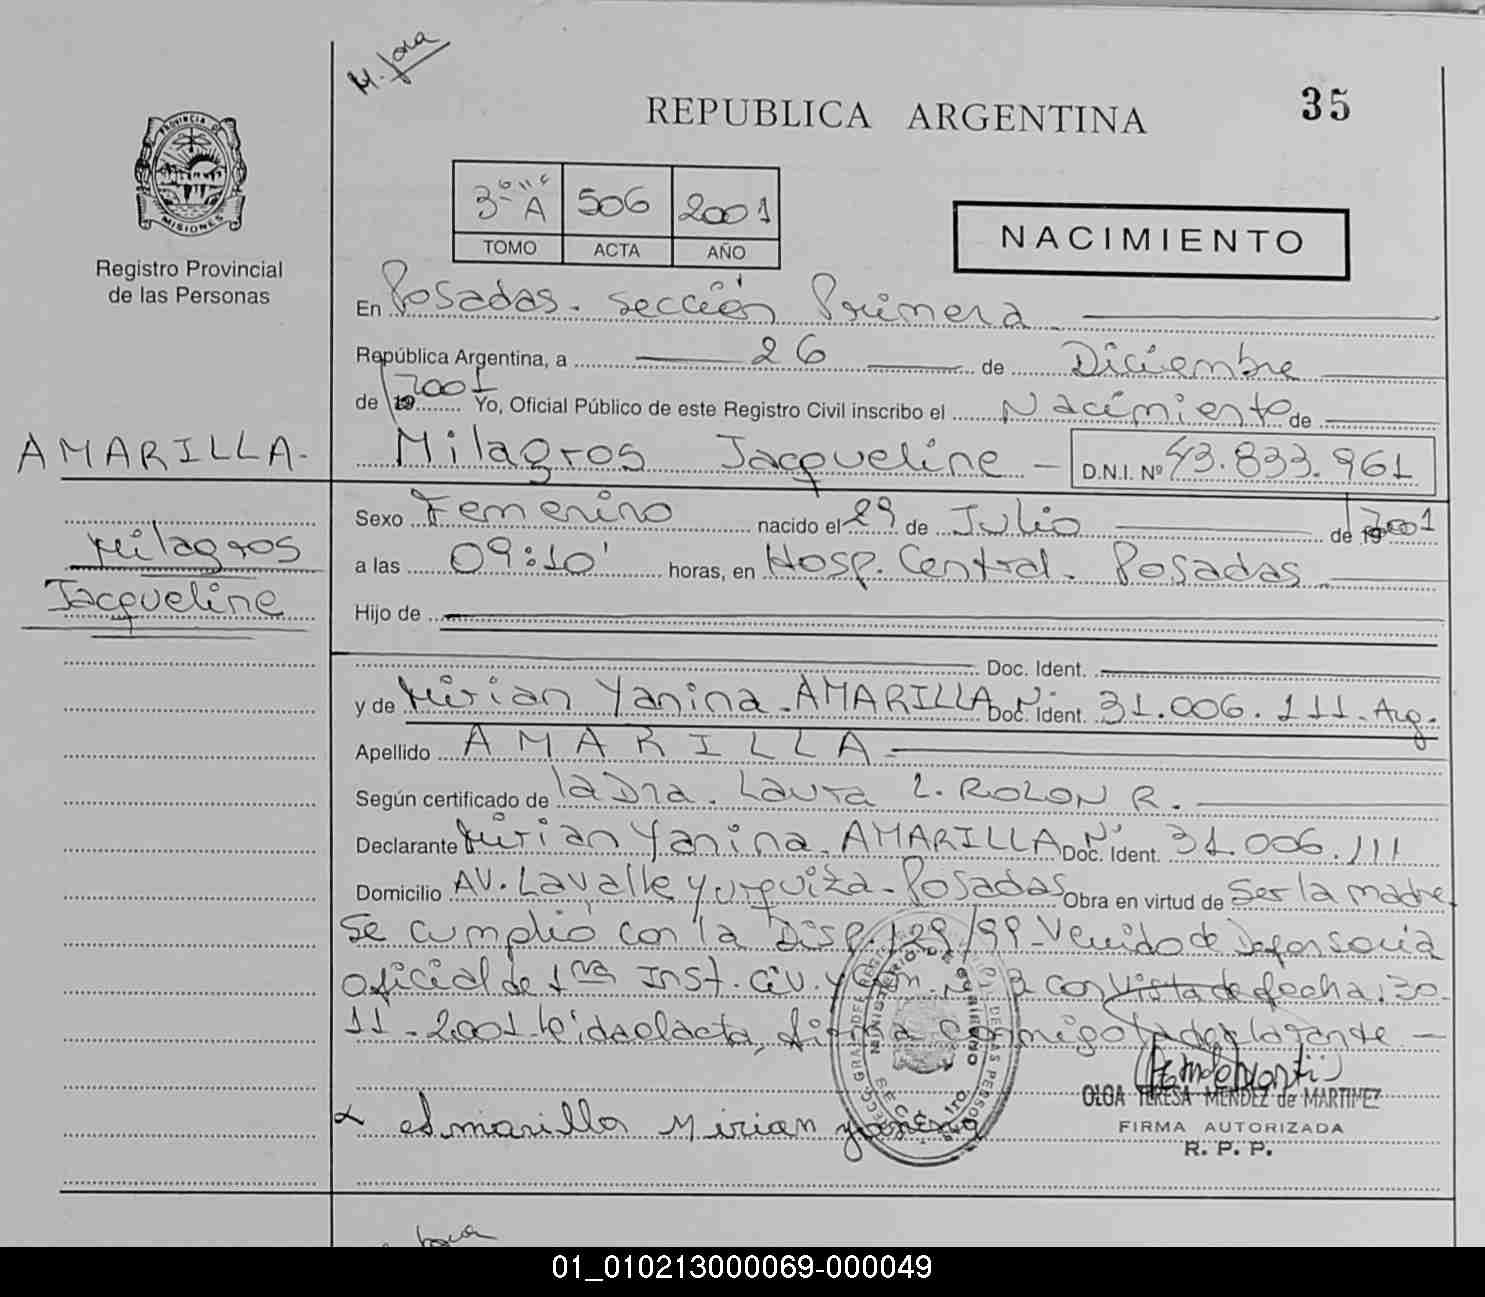 M. Jora
REPUBLICA ARGENTINA
35
PROVINCIA DE
MISIONES
Registro Provincial
de las Personas
3- A 506 2001
TOMO ACTA AÑO
NACIMIENTO
En Posadas. Sección Primera
República Argentina, a 26 de Diciembre
de 19 2001 Yo, Oficial Público de este Registro Civil inscribo el Nacimiento de
AMARILLA-
Milagros Jacqueline D.N.I. Nº 43.833.961
Milagros
Jacqueline
Sexo Femenino nacido el 29 de Julio de 19 2001
a las 09:10' horas, en Hosp. Central. Posadas
Hijo de
Doc. Ident.
y de Mirian Yanina. AMARILLA Doc. Ident. Nº 31.006.111. Arg.
Apellido AMARILLA
Según certificado de la Dra. Laura L. ROLON R.
Declarante Mirian Yanina. AMARILLA Doc. Ident. Nº 31.006.111
Domicilio AV. Lavalle y Urquiza. Posadas Obra en virtud de Ser la madre
Se cumplió con la Disp. 129/99 - Venido de Defensoria
oficial de 1ra Inst. Civ. y Com. Nº 2 con vista de fecha: 30-
11-2001- leida el acta, firma conmigo la declarante -
Amarilla Mirian Yanina
OLGA TERESA MENDEZ de MARTINEZ
FIRMA AUTORIZADA
R. P. P.
MINISTERIO DE GOBIERNO
DE LAS PERSONAS
01_010213000069-000049